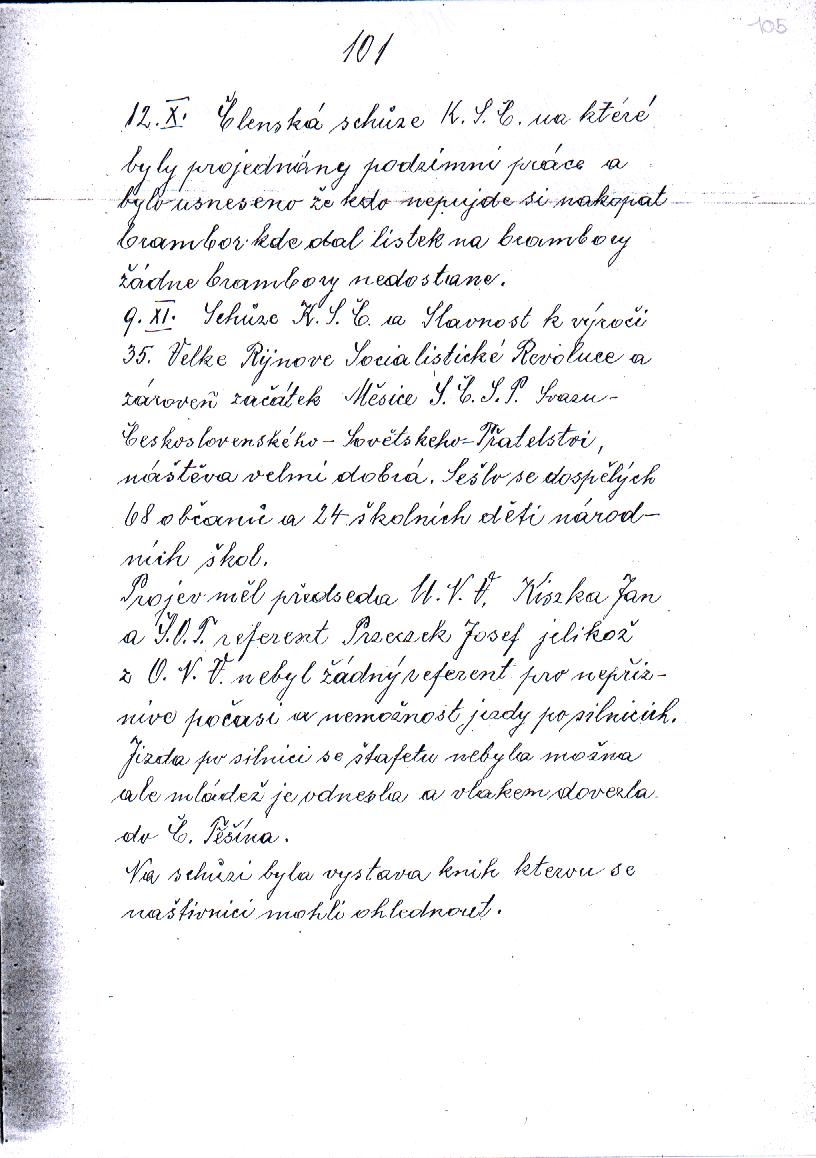 105
101
12. X. Členská schůze K. S. Č. na ktéré
byly projednány podzimni práce a
bylo usneseno že kdo nepujde si nakopat
brambor kde dal listek na brambory
žádne brambory nedostane.
9. XI. Schůze K. S. Č. a Slavnost k výroči
35. Velke Rýjnove Socialistické Revoluce a
zároveň začátek Měsice S. Č. S. P. Svazu-
Československého-Sovětskeho-Přatelstvi,
náštěva velmi dobrá. Sešlo se dospělých
68 občanů a 24 školnich děti národ-
nich škol.
Projev měl předseda M. N. V. Kiszka Jan
a Š. O. P. referent Przeczek Josef jelikož
z O. N. V. nebyl žádný referent pro nepřiz-
nive počasi a nemožnost jizdy po silnicich.
Jizda po silnici se štafetu nebyla možna
ale mládež je odnesla a vlakem dovezla
do Č. Těšína.
Na schůzi byla vystava knih kterou se
naštivnici mohli ohlednout.